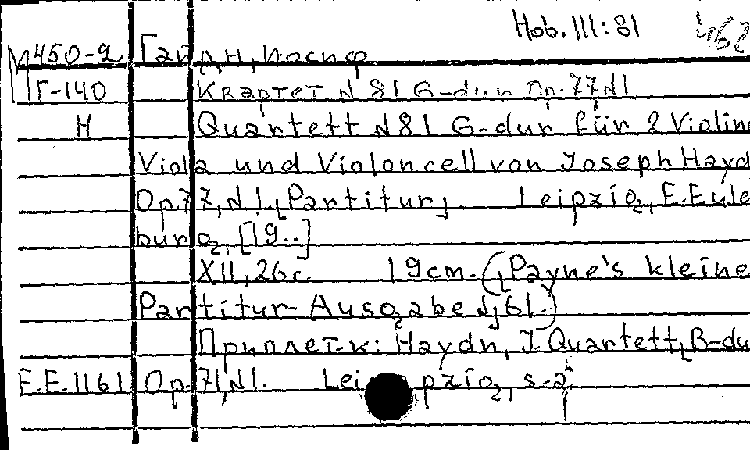 Hob. III:81 462
М450-2 Гайдн, Иосиф
Г-140 Квартет N 81 G-dur Op.77,N1
H Quartett N81 G-dur für 2 Violin
Viola und Violoncell von Joseph Hayd
Op.77, N1. [Partitur]. Leipzig, E.Eule
burg, [19..]
XII, 26 с. 19 cm. (Payne's kleine
Partitur-Ausgabe N 61.)
Приплет. к: Haydn, J. Quartett, B-du
E.E.1161 Op.71, N1. Leipzig, s.a.